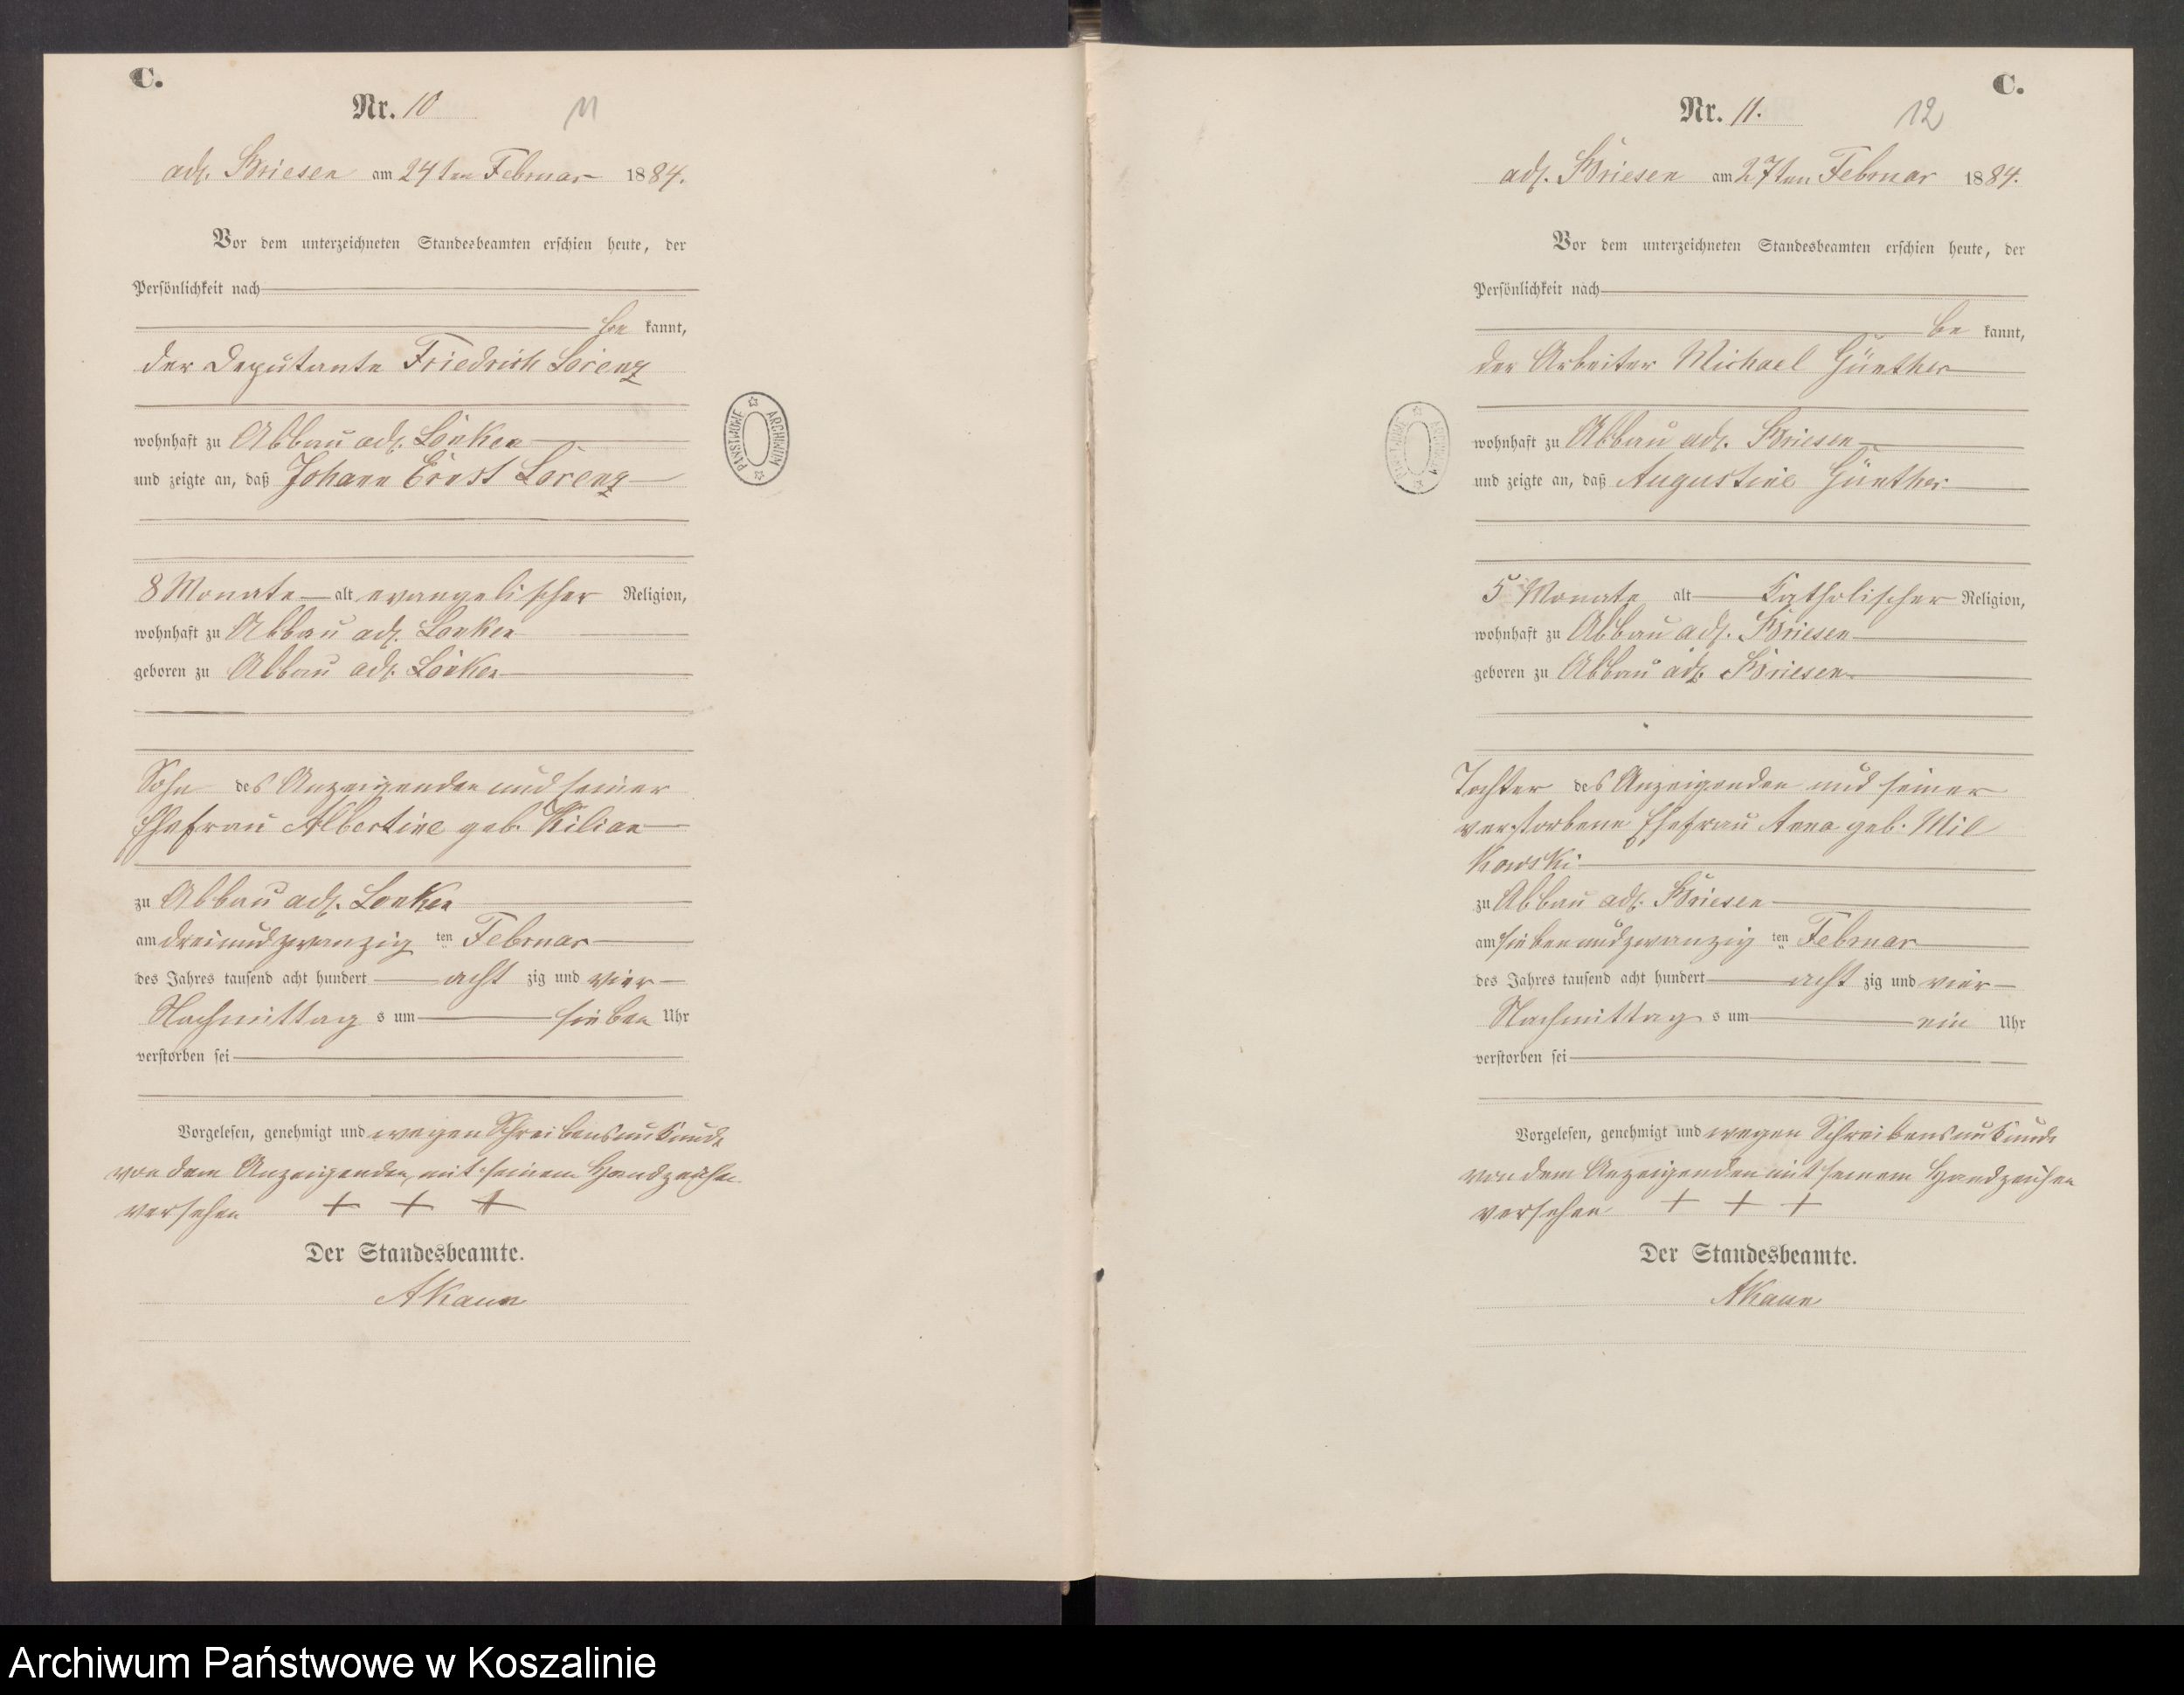 C.
Nr. 10
11
adl. Briesen am 24ten Februar 1884.
Vor dem unterzeichneten Standesbeamten erschien heute, der
Persönlichkeit nach
be kannt,
der Deputante Friedrich Lorenz
wohnhaft zu Abbau adl. Lonken
und zeigte an, daß Johann Ernst Lorenz
8 Monate alt evangelischer Religion,
wohnhaft zu Abbau adl. Lonken
geboren zu Abbau adl. Lonken
Sohn des Anzeigenden und seiner
Ehefrau Albertine geb. Kilian
zu Abbau adl. Lonken
am dreiundzwanzig ten Februar
des Jahres tausend acht hundert acht zig und vier
Nachmittag s um sieben Uhr
verstorben sei
Vorgelesen, genehmigt und wegen Schreibensunkunde
von dem Anzeigenden mit seinem Handzeichen
versehen + + +
Der Standesbeamte.
AKaun
PAŃSTWOWE ARCHIWUM
C.
Nr. 11.
12
adl. Briesen am 27ten Februar 1884.
Vor dem unterzeichneten Standesbeamten erschien heute, der
Persönlichkeit nach
be kannt,
der Arbeiter Michael Günther
wohnhaft zu Abbau adl. Briesen
und zeigte an, daß Augustine Günther
5 Monate alt Katholischer Religion,
wohnhaft zu Abbau adl. Briesen
geboren zu Abbau adl. Briesen
Tochter des Anzeigenden und seiner
verstorbene Ehefrau Anna geb. Mil
Kowski
zu Abbau adl. Briesen
am siebenundzwanzig ten Februar
des Jahres tausend acht hundert acht zig und vier
Nachmittag s um ein Uhr
verstorben sei
Vorgelesen, genehmigt und wegen Schreibensunkunde
von dem Anzeigenden mit seinem Handzeichen
versehen + + +
Der Standesbeamte.
AKaun
Archiwum Państwowe w Koszalinie